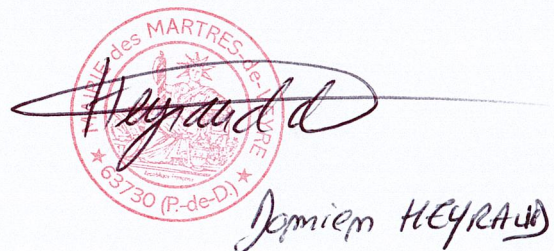 MAIRIE des MARTRES-de-VEYRE
★ 63730 (P.-de-D.) ★
Heyraud d
Damien HEYRAUD